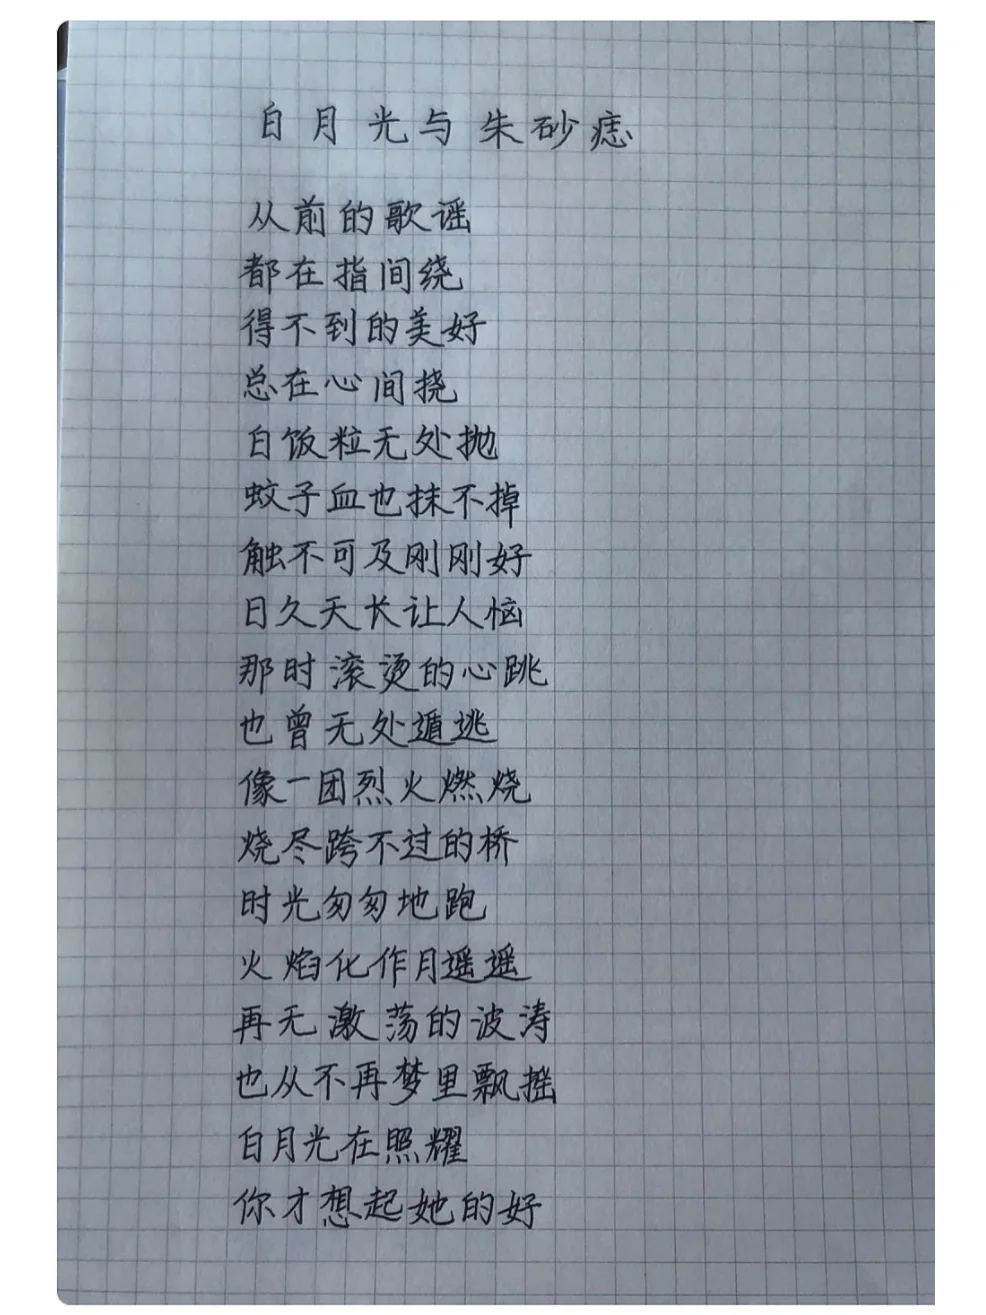 白月光与朱砂痣
从前的歌谣
都在指间绕
得不到的美好
总在心间挠
白饭粒无处抛
蚊子血也抹不掉
触不可及刚刚好
日久天长让人恼
那时滚烫的心跳
也曾无处遁逃
像一团烈火燃烧
烧尽跨不过的桥
时光匆匆地跑
火焰化作月遥遥
再无激荡的波涛
也从不再梦里飘摇
白月光在照耀
你才想起她的好